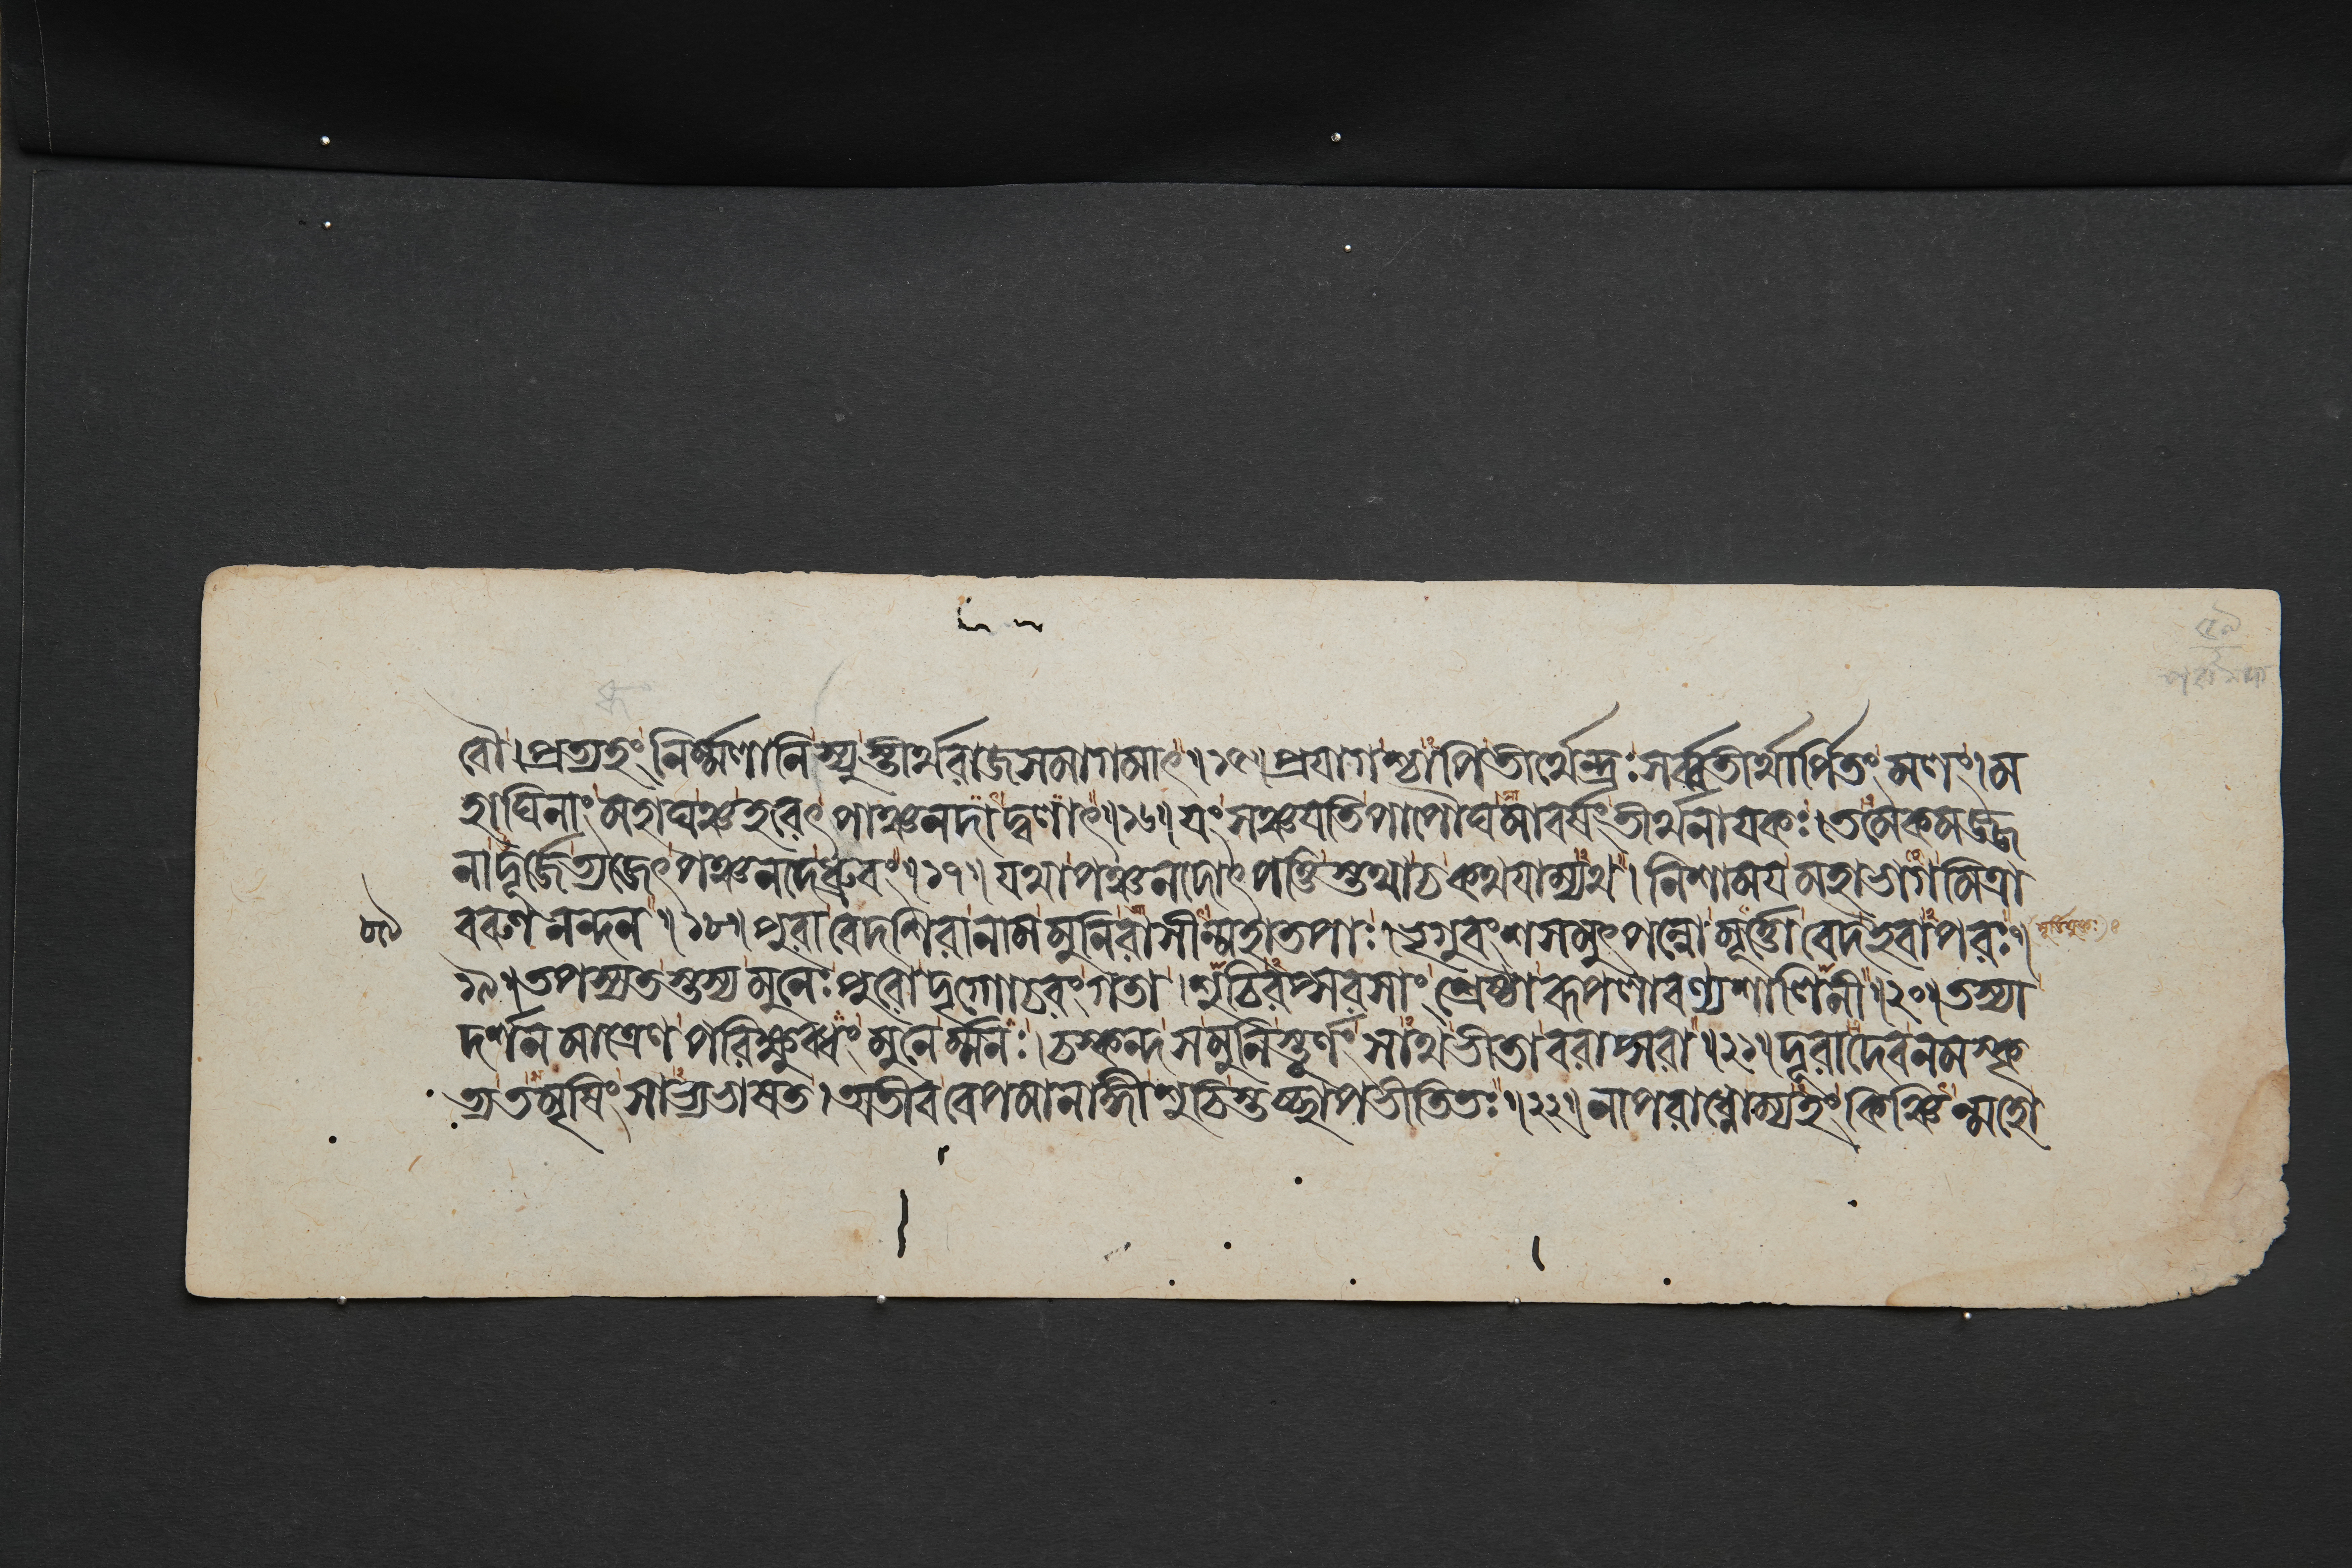 বৌ। প্রত্যহং নির্ম্মলানি স্যুস্তীর্থরাজসমাগমাৎ॥১৫॥ প্রযাগশ্চাপি তীর্থেন্দ্রঃ সর্ব্বতীর্থার্পিতং মলং। ম
হাঘিনাং মহাঘঞ্চ হরেৎ পাঞ্চনদাদ্বলাৎ॥১৬॥ যং সঞ্চযতি পাপৌঘমাবর্ষং তীর্থনাযকঃ। তমেকমজ্জ
নাদূর্জে ত্যজেৎ পঞ্চনদে ধ্রুবং॥১৭॥ যথা পঞ্চনদোৎপত্তিস্তথা চ কথযাম্যথ। নিশাময মহাভাগ মিত্রা
বরুণনন্দন॥১৮॥ পুরা বেদশিরা নাম মুনিরাসীন্মহাতপাঃ। ভৃগুবংশসমুৎপন্নো মূর্ত্তো বেদ ইবাপরঃ॥
১৯॥ তপস্যতস্তস্য মুনেঃ পুরো দৃগ্গোচরং গতা। শুচিরপ্সরসাং শ্রেষ্ঠা রূপলাবণ্যশালিনী॥২০॥ তস্যা
দর্শনমাত্রেণ পরিক্ষুব্ধং মুনের্ম্মনঃ। চস্কন্দ স মুনিস্তূর্ণং সাথ ভীতা বরাপ্সরা॥২১॥ দূরাদেব নমস্কৃ
ত্য তমৃষিং সাভ্যভাষত। অতীব বেপমানাঙ্গী শুচিস্তচ্ছাপভীতিতঃ॥২২॥ নাপরাধ্নোম্যহং কিঞ্চিন্মহো